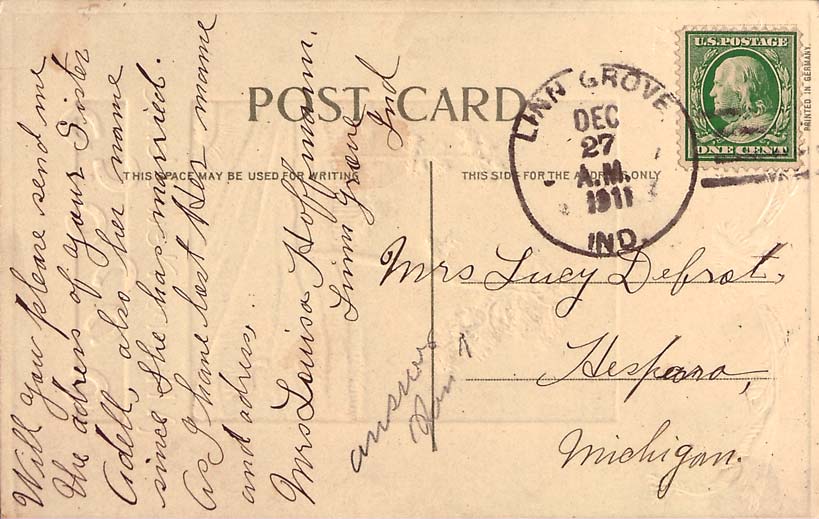 POST CARD
THIS SPACE MAY BE USED FOR WRITING
THIS SIDE FOR THE ADDRESS ONLY
U.S. POSTAGE
ONE CENT
PRINTED IN GERMANY.
LINN GROVE,
DEC
27
A.M.
1911
IND.
Will you please send me
the adress of your Sister
Adell, also her name
since she has married.
As I have lost Her name
and adress,
Mrs Louisa Hoffmann.
Linn Grove
Ind
Mrs Lucy Defrot,
Hesparo,
Michigan.
answer
Jan